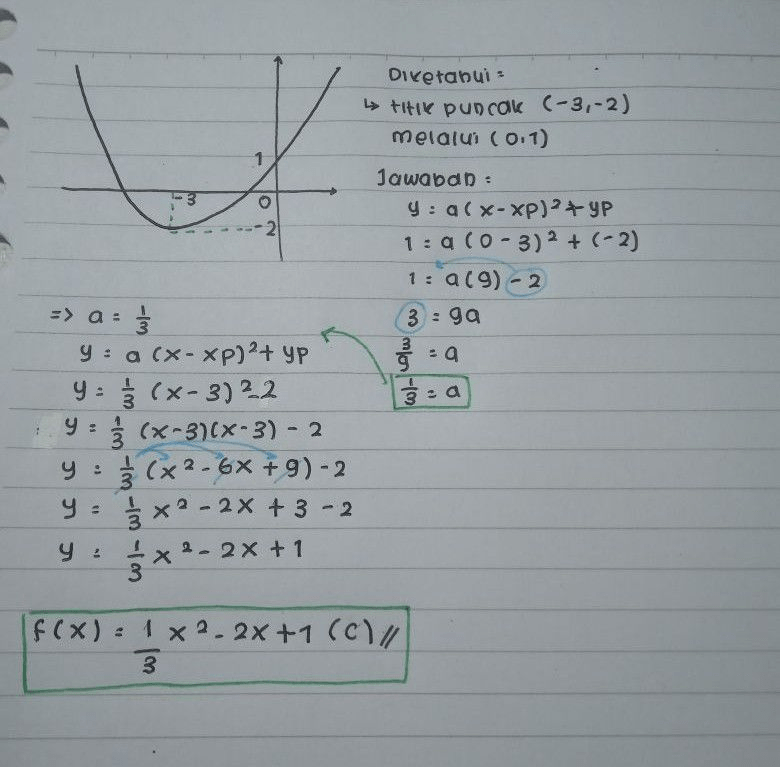 1
-3
0
-2
Diketahui =
↳ titik puncak (-3,-2)
melalui (0,1)
Jawaban :
y = a(x-xp)² + yp
1 = a(0-3)² + (-2)
1 = a(9) - 2
3 = 9a
3/9 = a
1/3 = a
=> a = 1/3
y = a (x-xp)² + yp
y = 1/3 (x-3)² -2
y = 1/3 (x-3)(x-3) - 2
y = 1/3 (x² - 6x + 9) - 2
y = 1/3 x² - 2x + 3 - 2
y = 1/3 x² - 2x + 1
f(x) = 1/3 x² - 2x + 1 (C) //